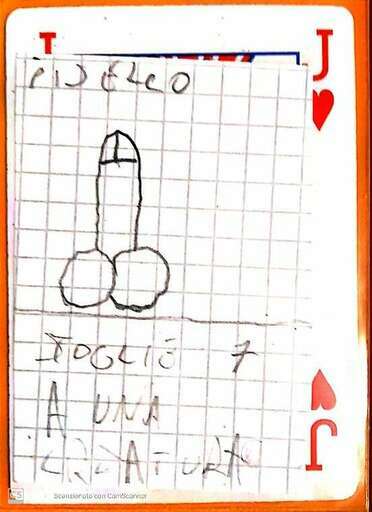 J
PISELLO
TOGLIE 7
A UNA
CREATURA
J
CS Scansionato con CamScanner